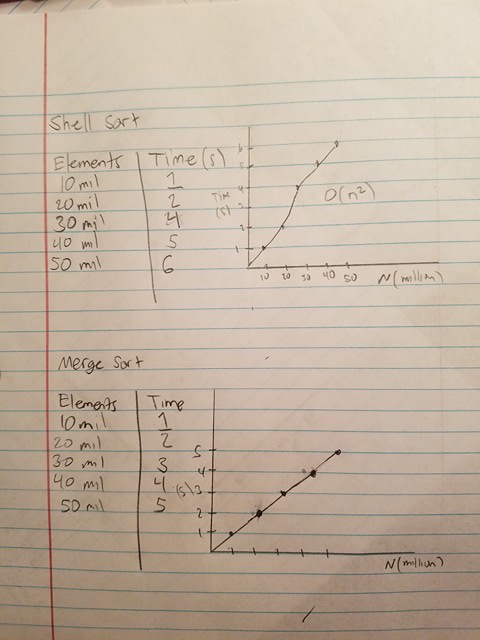 Shell Sort
Elements Time (s)
10 mil 1
20 mil 2
30 mil 4
40 mil 5
50 mil 6
6
5
4
3
2
1
Time
(s)
O(n²)
10 20 30 40 50 N(million)
Merge Sort
Elements Time
10 mil 1
20 mil 2
30 mil 3
40 mil 4
50 mil 5
5
4
(s) 3
2
1
N(million)